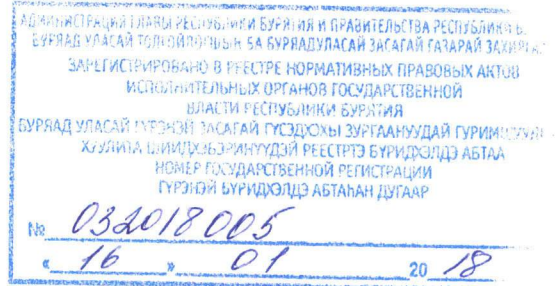 АДМИНИСТРАЦИЯ ГЛАВЫ РЕСПУБЛИКИ БУРЯТИЯ И ПРАВИТЕЛЬСТВА РЕСПУБЛИКИ Б
БУРЯАД УЛАСАЙ БА БУРЯАДУЛАСАЙ ЗАСАГАЙ ГАЗАРАЙ
ЗАРЕГИСТРИРОВАНО В РЕЕСТРЕ НОРМАТИВНЫХ ПРАВОВЫХ АКТОВ
ИСПОЛНИТЕЛЬНЫХ ОРГАНОВ ГОСУДАРСТВЕННОЙ
ВЛАСТИ РЕСПУБЛИКИ БУРЯТИЯ
БУРЯАД УЛАСАЙ ГҮРЭНЭЙ ЗАСАГАЙ ГҮСЭДХЭХЫ ЗУРГААНУУДАЙ
РЕЕСТРТЭ БҮРИДХЭЛДЭ АБТАА
НОМЕР ГОСУДАРСТВЕННОЙ РЕГИСТРАЦИИ
ГҮРЭНЭЙ БҮРИДХЭЛДЭ АБТАҺАН ДУГААР
№ 032018005
« 16 » 01 20 18